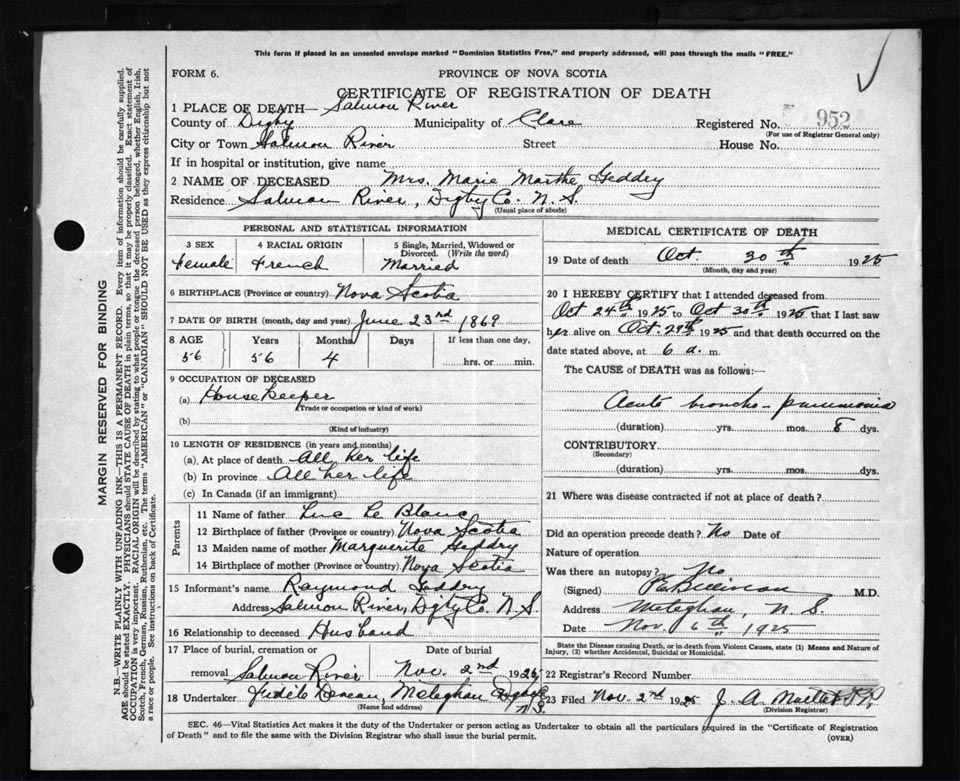 This form if placed in an unsealed envelope marked "Dominion Statistics Free," and properly addressed, will pass through the mails "FREE."
FORM 6.
PROVINCE OF NOVA SCOTIA
CERTIFICATE OF REGISTRATION OF DEATH
1 PLACE OF DEATH— Salmon River
County of Digby Municipality of Clare Registered No. 952
(For use of Registrar General only)
City or Town Salmon River Street House No.
If in hospital or institution, give name
2 NAME OF DECEASED Mrs. Marie Marthe Geddry
Residence Salmon River, Digby Co. N.S.
(Usual place of abode)
PERSONAL AND STATISTICAL INFORMATION
3 SEX 4 RACIAL ORIGIN 5 Single, Married, Widowed or Divorced. (Write the word)
Female French Married
6 BIRTHPLACE (Province or country) Nova Scotia
7 DATE OF BIRTH (month, day and year) June 23rd 1869
8 AGE Years Months Days If less than one day,
56 56 4 hrs. or min.
9 OCCUPATION OF DECEASED
(a) House Keeper
(Trade or occupation or kind of work)
(b)
(Kind of industry)
10 LENGTH OF RESIDENCE (in years and months)
(a) At place of death All her life
(b) In province All her life
(c) In Canada (if an immigrant)
Parents
11 Name of father Luc Le Blanc
12 Birthplace of father (Province or country) Nova Scotia
13 Maiden name of mother Marguerite Geddry
14 Birthplace of mother (Province or country) Nova Scotia
15 Informant's name Raymond Geddry
Address Salmon River, Digby Co. N.S.
16 Relationship to deceased Husband
17 Place of burial, cremation or Date of burial
removal Salmon River Nov. 2nd 1925
18 Undertaker Meteghan Digby Co N.S.
(Name and address)
MEDICAL CERTIFICATE OF DEATH
19 Date of death Oct. 30th 1925
(Month, day and year)
20 I HEREBY CERTIFY that I attended deceased from
Oct 24th 1925 to Oct 30th 1925 that I last saw
her alive on Oct. 29th 1925 and that death occurred on the
date stated above, at 6 a. m.
The CAUSE of DEATH was as follows:—
Acute broncho-pneumonia
(duration) yrs. mos. 8 dys.
CONTRIBUTORY
(Secondary)
(duration) yrs. mos. dys.
21 Where was disease contracted if not at place of death?
Did an operation precede death? No Date of
Nature of operation
Was there an autopsy? No
(Signed) M.D.
Address Meteghan, N.S.
Date Nov. 6th 1925
State the Disease causing Death, or in death from Violent Causes, state (1) Means and Nature of Injury, (2) whether Accidental, Suicidal or Homicidal.
22 Registrar's Record Number
23 Filed Nov. 2nd 1925 J. A.
(Division Registrar)
SEC. 46—Vital Statistics Act makes it the duty of the Undertaker or person acting as Undertaker to obtain all the particulars required in the "Certificate of Registration
of Death" and to file the same with the Division Registrar who shall issue the burial permit.
(OVER)
MARGIN RESERVED FOR BINDING
N.B.—WRITE PLAINLY WITH UNFADING INK—THIS IS A PERMANENT RECORD. Every item of information should be carefully supplied.
AGE should be stated EXACTLY. PHYSICIANS should STATE CAUSE OF DEATH in plain terms, so that it may be properly classified. Exact statement of
OCCUPATION is very important. RACIAL ORIGIN will be described by stating to what people or tongue the deceased person belonged, whether English, Irish,
Scotch, French, German, Russian, Ruthenian, etc. The terms "AMERICAN" or "CANADIAN" SHOULD NOT BE USED as they express citizenship but not
a race or people. See instructions on back of Certificate.